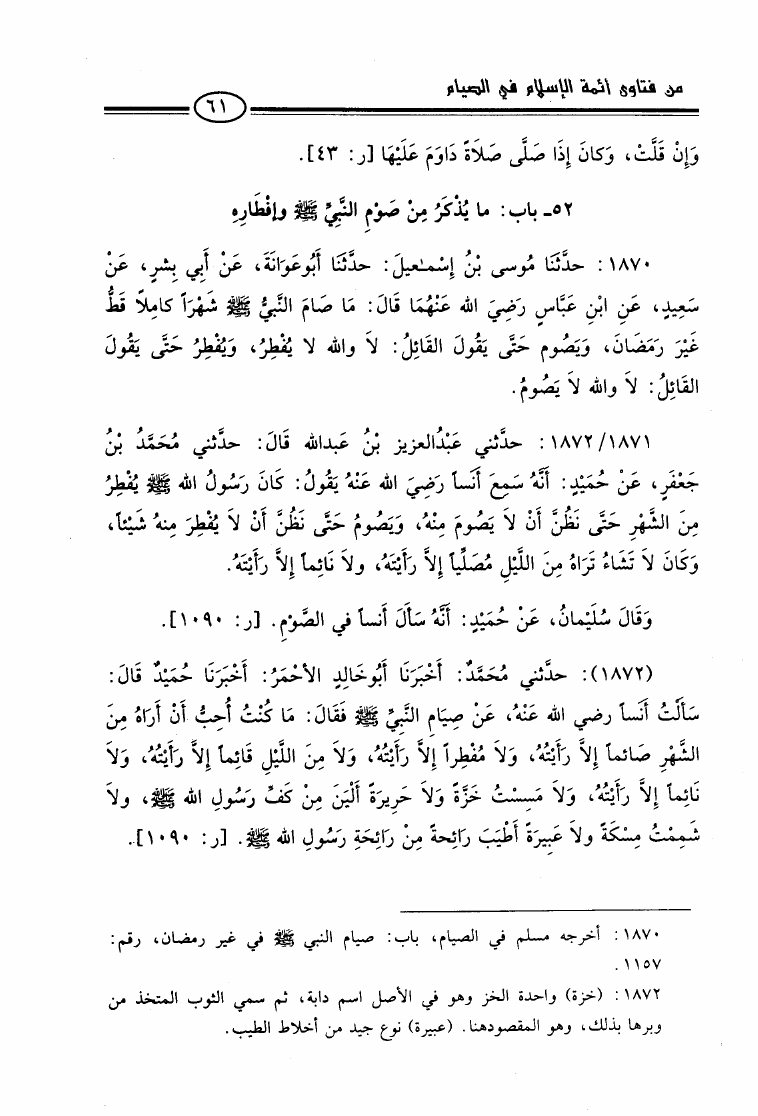 من فتاوى أئمة الإسلام في الصيام
٦١
وَإِنْ قَلَّتْ، وَكانَ إِذَا صَلَّى صَلاَةً دَاوَمَ عَلَيْهَا [ر: ٤٣].
٥٢ـ باب: ما يُذْكَرُ مِنْ صَوْمِ النَّبِيِّ ﷺ وإفْطَارِهِ
١٨٧٠: حدَّثَنَا مُوسى بْنُ إسْمـٰعيلَ: حدَّثَنَا أَبُوعَوَانَةَ، عَنْ أَبي بِشرٍ، عَنْ
سَعِيدٍ، عَنِ ابْنِ عَبَّاسٍ رَضِيَ الله عَنْهُمَا قَالَ: مَا صَامَ النَّبيُّ ﷺ شَهْرَاً كامِلاً قَطُّ
غَيْرَ رَمَضَانَ، وَيَصُوم حَتَّى يَقُولَ القَائِلُ: لاَ والله لا يُفْطِرُ، وَيُفْطِرُ حَتَّى يَقُولَ
القَائِلُ: لاَ والله لاَ يَصُومُ.
١٨٧٢/١٨٧١: حدَّثني عَبْدُالعزيز بْنُ عَبدالله قَالَ: حدَّثني مُحَمَّدُ بْنُ
جَعْفَرٍ، عَنْ حُمَيْدٍ: أَنَّهُ سَمِعَ أَنَساً رَضِيَ الله عَنْهُ يَقُولُ: كَانَ رَسُولُ الله ﷺ يُفْطِرُ
مِنَ الشَّهْرِ حَتَّى نَظُنَّ أَنْ لاَ يَصُومَ مِنْهُ، وَيَصُومُ حَتَّى نَظُنَّ أَنْ لاَ يُفْطِرَ مِنهُ شَيْئاً،
وَكَانَ لاَ تَشَاءُ تَرَاهُ مِنَ اللَّيْلِ مُصَلِّياً إِلاَّ رَأَيْتَهُ، ولاَ نَائِماً إِلاَّ رَأَيْتَهُ.
وَقَالَ سُلَيْمانُ، عَنْ حُمَيْدٍ: أَنَّهُ سَأَلَ أَنساً في الصَّوْمِ. [ر: ١٠٩٠].
(١٨٧٢): حدَّثني مُحَمَّدٌ: أَخْبَرَنَا أَبُوخَالِدٍ الأَحْمَرُ: أَخْبَرَنَا حُمَيْدٌ قَالَ:
سَأَلْتُ أَنَساً رضي الله عَنْهُ، عَنْ صِيَامِ النَّبِيِّ ﷺ فَقَالَ: مَا كُنْتُ أُحِبُّ أَنْ أَرَاهُ مِنَ
الشَّهْرِ صَائماً إِلاَّ رَأَيْتُهُ، وَلاَ مُفْطِراً إِلاَّ رَأَيْتُهُ، وَلاَ مِنَ اللَّيْلِ قَائِماً إِلاَّ رَأَيْتُهُ، وَلاَ
نَائِماً إِلاَّ رَأَيْتُهُ، وَلاَ مَسِسْتُ خَزَّةً وَلاَ حَرِيرَةً أَلْيَنَ مِنْ كَفِّ رَسُولِ الله ﷺ، ولاَ
شَمِمْتُ مِسْكَةً ولاَ عَبِيرَةً أَطْيَبَ رَائِحةً مِنْ رَائِحَةِ رَسُولِ الله ﷺ. [ر: ١٠٩٠].
١٨٧٠: أخرجه مسلم في الصيام، باب: صيام النبي ﷺ في غير رمضان، رقم:
١١٥٧.
١٨٧٢: (خزة) واحدة الخز وهو في الأصل اسم دابة، ثم سمي الثوب المتخذ من
وبرها بذلك، وهو المقصودهنا. (عبيرة) نوع جيد من أخلاط الطيب.